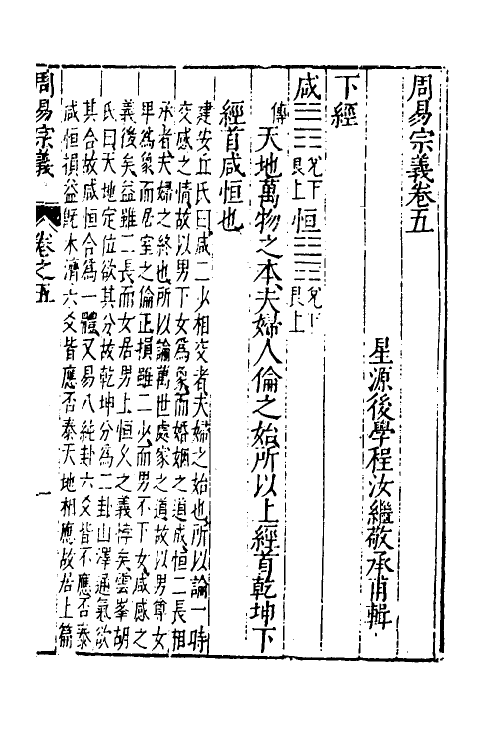 周易宗義卷五
星源後學程汝繼敬承甫輯
下經
咸䷞兌下艮上恒䷞兌下艮上
傳天地萬物之本夫婦人倫之始所以上經首乾坤下
經首咸恒也
建安丘氏曰咸二少相交者夫婦之始也所以論一時
交感之情故以男下女爲象而婚姻之道成恒二長相
承者夫婦之終也所以論萬世處家之道故以男尊女
卑爲象而居室之倫正損雖二少而男不下女咸感之
義後矣益雖二長而女居男上恒久之義悖矣雲峯胡
氏曰天地定位欲其分故乾坤分爲二卦山澤通氣欲
其合故咸恒合爲一體又易八純卦六爻皆不應否泰
咸恒損益旣未濟六爻皆應否泰天地相應故居上篇
周易宗義
卷之五
一